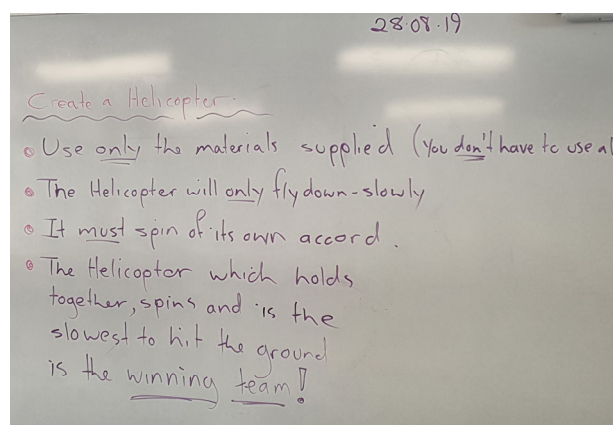 28.08.19
Create a Helicopter.
Use only the materials supplied (You don't have to use al
The Helicopter will only fly down-slowly
It must spin of its own accord.
The Helicopter which holds
together, spins and is the
slowest to hit the ground
is the winning team!